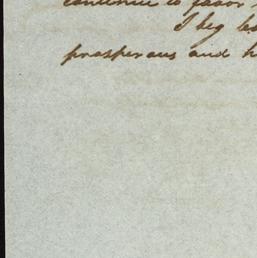 continue to favor
I beg
prosperous and